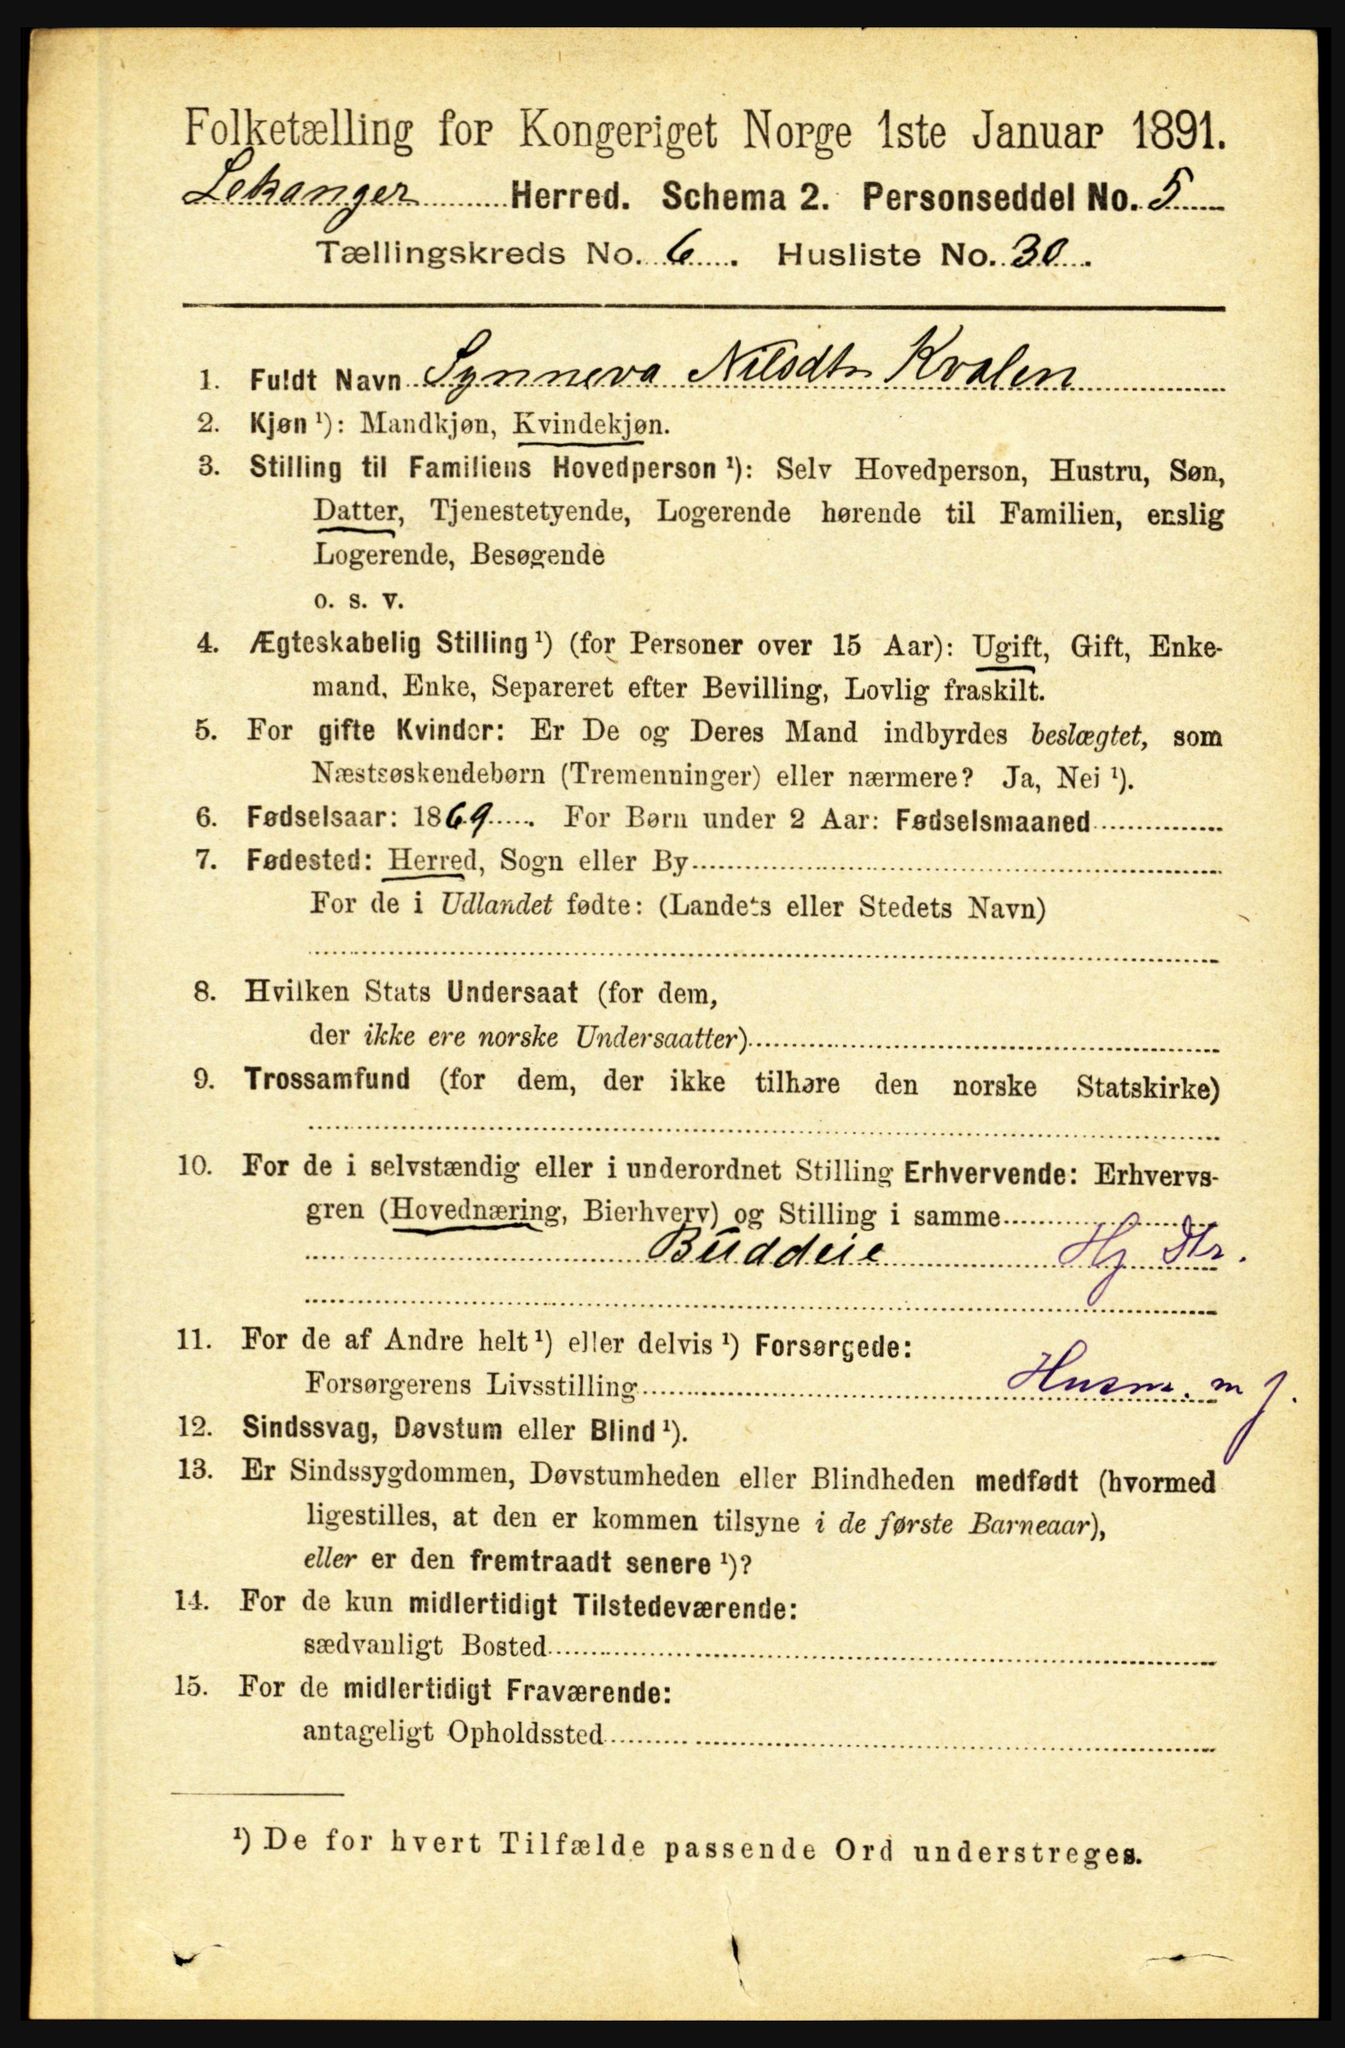 Folketælling for Kongeriget Norge 1ste Januar 1891.
Lekanger Herred. Schema 2. Personseddel No. 5
Tællingskreds No. 6. Husliste No. 30.
1. Fuldt Navn Synneva Nilsdtr Kvalen
2. Kjøn ¹): Mandkjøn, Kvindekjøn.
3. Stilling til Familiens Hovedperson ¹): Selv Hovedperson, Hustru, Søn,
Datter, Tjenestetyende, Logerende hørende til Familien, enslig
Logerende, Besøgende
o. s. v.
4. Ægteskabelig Stilling ¹) (for Personer over 15 Aar): Ugift, Gift, Enke-
mand, Enke, Separeret efter Bevilling, Lovlig fraskilt.
5. For gifte Kvinder: Er De og Deres Mand indbyrdes beslægtet, som
Næstsøskendebørn (Tremenninger) eller nærmere? Ja, Nei ¹).
6. Fødselsaar: 1869. For Børn under 2 Aar: Fødselsmaaned
7. Fødested: Herred, Sogn eller By
For de i Udlandet fødte: (Landets eller Stedets Navn)
8. Hvilken Stats Undersaat (for dem,
der ikke ere norske Undersaatter)
9. Trossamfund (for dem, der ikke tilhøre den norske Statskirke)
10. For de i selvstændig eller i underordnet Stilling Erhvervende: Erhvervs-
gren (Hovednæring, Bierhverv) og Stilling i samme
Buddeie Hj Dtr.
11. For de af Andre helt ¹) eller delvis ¹) Forsørgede:
Forsørgerens Livsstilling Husm. m j.
12. Sindssvag, Døvstum eller Blind ¹).
13. Er Sindssygdommen, Døvstumheden eller Blindheden medfødt (hvormed
ligestilles, at den er kommen tilsyne i de første Barneaar),
eller er den fremtraadt senere ¹)?
14. For de kun midlertidigt Tilstedeværende:
sædvanligt Bosted
15. For de midlertidigt Fraværende:
antageligt Opholdssted
¹) De for hvert Tilfælde passende Ord understreges.